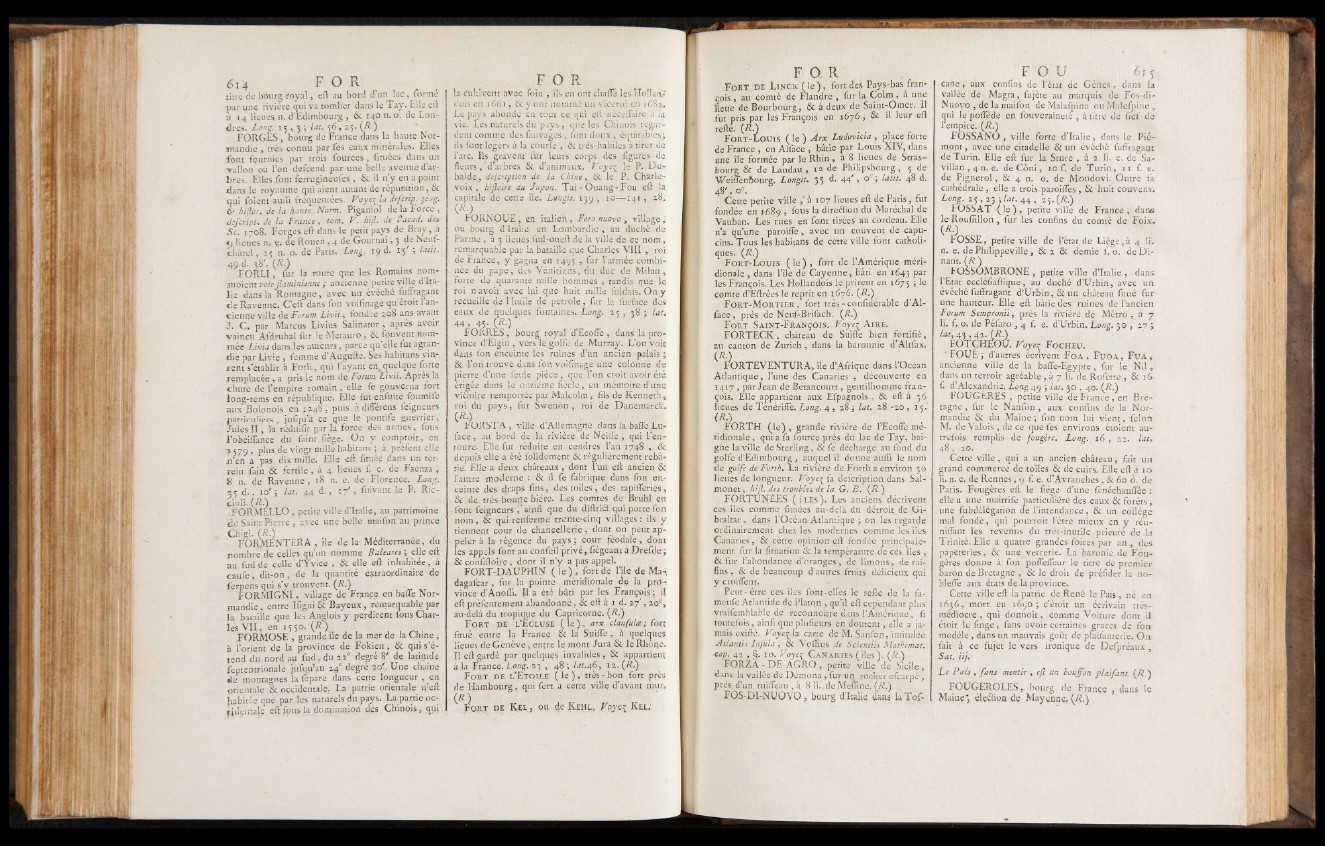 614 F O R
titre de bourg royal, est au bord d'un lac, formé
par une rivière qui va tomber dans le Tay. Elle est
à 14 lieues n. d'Edimbourg, & 140 n. o. de Lon-
dres. Long. 15, 3; lat. 56, 25. (R.)
FORGES, bourg de France dans la haute Nor-
mandie, très connu par ses eaux minérales. Elles
sont fournies par trois sources, situées dans un
vallon où l'on descend par une belle avenue d'ar-
bres. Elles sont ferrugineuses, & il n'y en a point
dans le royaume qui aient autant de réputation, &
qui soient aussi fréquentées. Voyez la descrip. géog.
& histor. de la haute Norm. Piganiol de la Force,
descript. de la France, tom. V. hist. de l'acad. des
Sc. 1708. Forges est dans le petit pays de Bray, à
9 lieues n. e. de Rouen, 4 de Gournai, 3 de Neuf-
châtel, 25 n. o. de Paris. Long. 19 d. 15'; latit.
49 d. 38'. (R.)
FORLI, sur la route que les Romains nom-
moient voie flaminienne; ancienne petite ville d'Ita-
lie dans la Romagne, avec un évêché suffragant
de Ravenne. C'est dans son voisinage qu'étoit l'an-
cienne ville de Forum Livii, fondée 208 ans avant
J. C. par Marcus Livius Salinator, après avoir
vaincu Asdrubal sur le Metauro, & souvent nom-
mée Livia dans les auteurs, parce qu'elle fut agran-
die par Livie, femme d'Auguste. Ses habitans vin-
rent s'établir à Forli, qui l'ayant en quelque sorte
remplacée, a pris le nom de Forum Livii. Après la
chute de l'empire romain, elle se gouverna fort
long-tems en république. Elle fut ensuite soumise
aux Bolonois en 1248, puis à différens seigneurs
particuliers, jusqu'à ce que le pontife guerrier,
Jules II, la réduisit par la force des armes, sous
l'obéissance du saint siège. On y comptoit, en
1579, plus de vingt mille habitans; à présent elle
n'en a pas dix mille. Elle est située dans un ter-
rein sain & fertile, à 4 lieues s. e. de Faenza,
8 n. de Ravenne, 18 n. e. de Florence. Long.
35 d., 10'; lat. 44 d., 17', suivant le P. Ric-
cioli. (R.)
FORMELLO, petite ville d'Italie, au patrimoine
de Saint Pierre, avec une belle maison au prince
Chigi. (R.)
FORMENTERA, île de la Méditerranée, du
nombre de celles qu'on nomme Baleares; elle est
au sud de celle d'Yvice, & elle est inhabitée, à
cause, dit-on, de la quantité extraordinaire de
serpens qui s'y trouvent. (R.)
FORMIGNI, village de France en basse Nor-
mandie, entre Isigni & Bayeux, remarquable par
la bataille que les Anglois y perdirent sous Char-
les VII, en 1550. (R.)
FORMOSE, grande île de la mer de la Chine,
à l'orient de la province de Fokien, & qui s'é-
tend du nord au sud, du 22e degré 8' de latitude
septentrionale jusqu'au 24e degré 20'. Une chaîne
de montagnes la sépare dans cette longueur, en
orientale & occidentale. La partie orientale n'est
habitée que par les naturels du pays. La partie oc-
cidentale est sous la domination des Chinois, qui
F O R
la cultivent avec soin, ils en ont chassé les Hollan-
dois en 1661, & y ont nommé un viceroi en 1682.
Le pays abonde en tout ce qui est nécessaire à la
vie. Les naturels du pays, que les Chinois regar-
dent comme des sauvages, sont doux, équitables;
ils sont légers à la course, & très-habiles à tirer de
l'arc. Ils gravent sur leurs corps des figures de
fleurs, d'arbres & d'animaux. Voyez le P. Du-
halde, description de la Chine, & le P. Charle-
voix, histoire du Japon. Tai-Ouang-Fou est la
capitale de cette île. Longit. 139, 10—141, 28.
(R.)
FORNOUE, en italien, Foro nuovo, village,
ou bourg d'Italie en Lombardie, au duché de
Parme, à 3 lieues sud-ouest de la ville de ce nom,
remarquable par la bataille que Charles VIII, roi
de France, y gagna en 1495, sur l'armée combi-
née du pape, des Vénitiens, du duc de Milan,
forte de quarante mille hommes, tandis que le
roi n'avoit avec lui que huit mille soldats. On y
recueille de l'huile de petrole, sur la surface des
eaux de quelques fontaines. Long. 25, 38; lat.
44, 45. (R.)
FORRES, bourg royal d'Ecosse, dans la pro-
vince d'Elgin, vers le golfe de Murray. L'on voit
dans son enceinte les ruines d'un ancien palais;
& l'on trouve dans son voisinage une colonne de
pierre d'une seule pièce, que l'on croit avoir été
érigée dans le onzième siècle, en mémoire d'une
victoire remportée par Malcolm, fils de Kenneth,
roi du pays, sur Swenon, roi de Danemarck.
(R.)
FORSTA, ville d'Allemagne dans la basse Lu-
sace, au bord de la rivière de Neisse, qui l'en-
toure. Elle fut réduite en cendres l'an 1748, &
depuis elle a été solidement & régulièrement rebâ-
tie. Elle a deux châteaux, dont l'un est ancien &
l'autre moderne: & il se fabrique dans son en-
ceinte des draps fins, des toiles, des tapisseries,
& de très-bonne bière. Les comtes de Bruhl en
sont seigneurs, ainsi que du district qui porte son
nom, & qui renferme trente-cinq villages: ils y
tiennent cour de chancellerie, dont on peut ap-
peler à la régence du pays; cour féodale, dont
les appels sont au conseil privé, siégeant à Dresde;
& consistoire, dont il n'y a pas appel.
FORT-DAUPHIN (le), fort de l'île de Ma-
dagascar, sur la pointe meridionale de la pro-
vince d'Anossi. Il a été bâti par les François; il
est présentement abandonné, & est à 1 d. 27', 20",
au-delà du tropique du Capricorne. (R.)
FORT DE L'ÉCLUSE (le), arx clausulæ; fort
situé entre la France & la Suisse, à quelques
lieues de Genève, entre le mont Jura & le Rhône.
Il est gardé par quelques invalides, & appartient
à la France. Long. 23, 48; lat. 46, 12. (R.)
FORT DE L'ÉTOILE (le), très-bon fort près
de Hambourg, qui sert à cette ville d'avant mur.
(R.)
FORT DE KEL, ou de KEHL, Voyez KEL.
F O R
FORT DE LINCK (le), fort des Pays-bas fran-
çois, au comté de Flandre, sur la Colm, à une
lieue de Bourbourg, & à deux de Saint-Omer. Il
fut pris par les François en 1676, & il leur est
resté. (R.)
FORT-LOUIS (le) Arx Ludovicia, place forte
de France, en Alsace, bâtie par Louis XIV, dans
une île formée par le Rhin, à 8 lieues de Stras-
bourg & de Landau, 12 de Philipsbourg, 5 de
Weissenbourg. Longit. 35 d. 44', 0"; latit. 48 d.
48', 0".
Cette petite ville, à 107 lieues est de Paris, fut
fondée en 1689, sous la direction du Maréchal de
Vauban. Les rues en sont tirées au cordeau. Elle
n'a qu'une paroisse, avec un couvent de capu-
cins. Tous les habitans de cette ville sont catholi-
ques. (R.)
FORT-LOUIS (le), fort de l'Amérique méri-
dionale, dans l'île de Cayenne, bâti en 1643 par
les François. Les Hollandois le prirent en 1675; le
comte d'Estrées le reprit en 1676. (R.)
FORT-MORTIER, fort très-considérable d'Al-
face, près de Neuf-Brisach. (R.)
FORT SAINT-FRANÇOIS. Voyez AIRE.
FORTECK, château de Suisse bien fortifié,
au canton de Zurich, dans la baronnie d'Altsax.
(R.)
FORTEVENTURA, île d'Afrique dans l'Océan
Atlantique, l'une des Canaries, découverte en
1417, par Jean de Betancourt, gentilhomme fran-
çois. Elle appartient aux Espagnols, & est à 36
lieues de Ténériffe. Long. 4, 28; lat. 28-20, 15.
(R.)
FORTH (le), grande rivière de l'Ecosse mé-
ridionale, qui a sa source près du lac de Tay, bai-
gne la ville de Sterling, & se décharge au fond du
golfe d'Edimbourg, auquel il donne aussi le nom
de golfe de Forth. La rivière de Forth a environ 30
lieues de longueur. Voyez sa description dans Sal-
monet, hist. des troubles de la G. B. (R.)
FORTUNÉES (ILES). Les anciens décrivent
ces îles comme situées au-delà du détroit de Gi-
braltar, dans l'Océan Atlantique; on les regarde
ordinairement chez les modernes comme les îles
Canaries, & cette opinion est fondée principale-
ment sur la situation & la température de ces îles,
& sur l'abondance d'oranges, de limons, de rai-
sins, & de beaucoup d'autres fruits délicieux qui
y croissent.
Peut-être ces îles sont-elles le reste de la fa-
meuse Atlantide de Platon, qu'il est cependant plus
vraisemblable de reconnoître dans l'Amérique, si
toutefois, ainsi que plusieurs en doutent, elle a ja-
mais existé. Voyez la carte de M. Sanson, intitulée
Atlantis Insula, & Vossius de Scientiis Mathemat.
cap. 42, §. 10. Voyez CANARIES (îles). (R.)
FORZA-DE-AGRO, petite ville de Sicile,
dans la vallée de Démona, sur un rocher escarpé,
près d'un ruisseau, à 8 li. de Messine. (R.)
FOS-DI-NUOVO, bourg d'Italie dans la Tos-
F O U 615
cane, aux confins de l'état de Gênes, dans la
vallée de Magra, sujète au marquis de Fos-di-
Nuovo, de la maison de Malaspina ou Malespine,
qui le possède en souveraineté, à titre de fief de
l'empire. (R.)
FOSSANO, ville forte d'Italie, dans le Pié-
mont, avec une citadelle & un évêché suffragant
de Turin. Elle est sur la Sture, à 2 li. e. de Sa-
villan, 4 n. e. de Côni, 10 s. de Turin, 11 s. e.
de Pignerol, & 4 n. o. de Mondovi. Outre sa
cathédrale, elle a trois paroisses, & huit couvens.
Long. 25, 23; lat. 44, 25. (R.)
FOSSAT (le), petite ville de France, dans
le Roussillon, sur les confins du comté de Foix.
(R.)
FOSSE, petite ville de l'état de Liège, à 4 li.
n. e. de Philippeville, & 2 & demie s. o. de Di-
nant. (R.)
FOSSOMBRONE, petite ville d'Italie, dans
l'Etat ecclésiastique, au duché d'Urbin, avec un
évêché suffragant d'Urbin, & un château situé sur
une hauteur. Elle est bâtie des ruines de l'ancien
Forum Sempronii, près la rivière de Métro, à 7
li. s. o. de Pésaro, 4 s. e. d'Urbin. Long. 30, 27;
lat. 43, 42. (R.)
FOTCHEOU. Voyez FOCHEU.
FOUE; d'autres écrivent FOA, FUOA, FUA,
ancienne ville de la basse-Egypte, sur le Nil,
dans un terroir agréable, à 7 li. de Rosette, & 16
s. d'Alexandrie. Long. 49; lat. 30, 40. (R.)
FOUGÈRES, petite ville de France, en Bre-
tagne, sur le Nanson, aux confins de la Nor-
mandie & du Maine; son nom lui vient, selon
M. de Valois, de ce que ses environs étoient au-
trefois remplis de fougère. Long. 16, 22. lat.
48, 20.
Cette ville, qui a un ancien château, fait un
grand commerce de toiles & de cuirs. Elle est à 10
li. n. e. de Rennes, 9 s. e. d'Avranches, & 60 o. de
Paris. Fougères est le siège d'une sénéchaussée:
elle a une maîtrise particulière des eaux & forêts,
une subdélégation de l'intendance, & un collège
mal fondé, qui pourroit l'être mieux en y réu-
nissant les revenus du très-inutile prieuré de la
Trinité. Elle a quatre grandes foires par an, des
papeteries, & une verrerie. La baronie de Fou-
gères donne à son possesseur le titre de premier
baron de Bretagne, & le droit de présider la no-
blesse aux états de la province.
Cette ville est la patrie de René le Pais, né en
1636, mort en 1690; c'étoit un écrivain très-
médiocre, qui donnoit, comme Voiture dont il
étoit le singe, sans avoir certaines graces de son
modèle, dans un mauvais goût de plaisanterie. On
sait à ce sujet le vers ironique de Despréaux,
Sat. iij.
Le Pais, sans mentir, est un bouffon plaisant. (R.)
FOUGEROLES, bourg de France, dans le
Maine, élection de Mayenne. (R.)